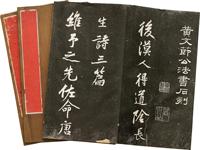 黄文節公法書石刻
後漢人得道陰長
生詩三篇
維予之先佐命唐